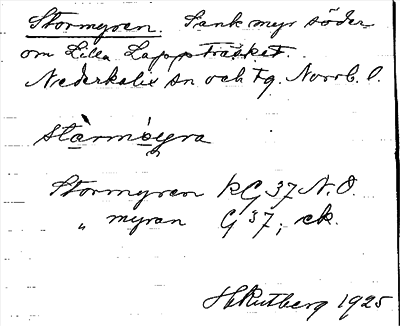 Stormyren. Sank myr söder
om Lilla Lappträsket.
Nederkalix sn och tg. Norrb. l.
stàrmöyra
Stormyren kG 37 N.O.
„ myran G 37; ek.
H Rutberg 1925